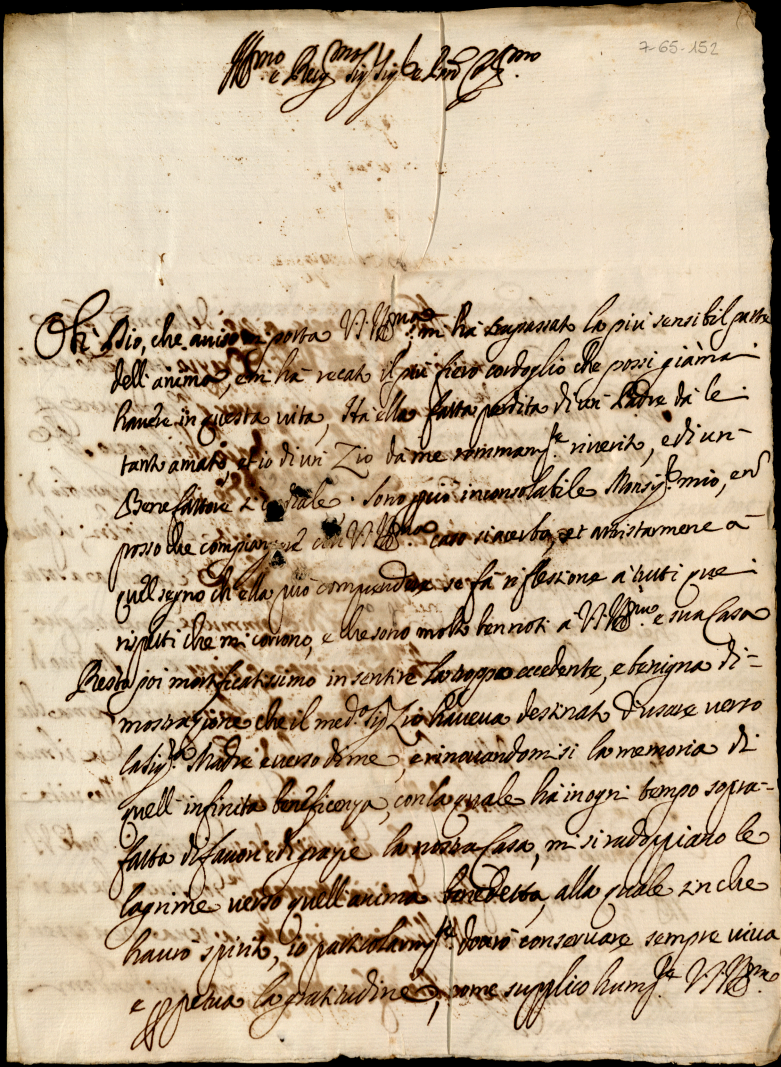 7-65-152
Ill.mo e Reu.mo Sig. Sig. e Pron Col.mo
Oh Dio, che auiso mi porta V.S. Ill.ma mi hà trapassato la più sensibil parte
dell'anima, e mi hà recato il più fiero cordoglio che possi giàmai
hauere in questa uita, Ha ella fatta perdita di un Padre dà lei
tanto amato, et io di un Zio da me sommam.te riuerito, e di un
Benefattore cordiale. Sono però inconsolabile Monsig.r mio, e nõ
posso che compiangere con V.S. Ill.ma caso si acerbo, et attristarmene à
quel segno ch'ella può comprendere se fà riflessione à tutti quei
rispetti che mi corrono, e che sono molto ben noti a V.S. Ill.ma e sua Casa
Resto poi mortificatissimo in sentire la troppo eccedente, e benigna di=
mostrazione che il med.o Sig. Zio haueua destinato d'usare uerso
la Sig.ra Madre e uerso di me, e rinouandomisi la memoria di
quell'infinita beneficenza, con la quale hà in ogni tempo sopra=
fatta di fauori e di grazie la nostra Casa, mi si radoppiano le
lagrime uerso quell'anima benedetta, alla quale sin che
haurò spirito, io particolarm.te dourò conseruare sempre uiua
e perpetua la gratitudine, come supplico hum.te V.S. Ill.ma